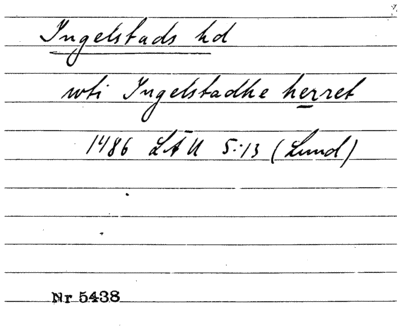 Ingelstads hd
wti Ingelstadhe herret
1486 LÄU 5:13 (Lund)
Nr 5438